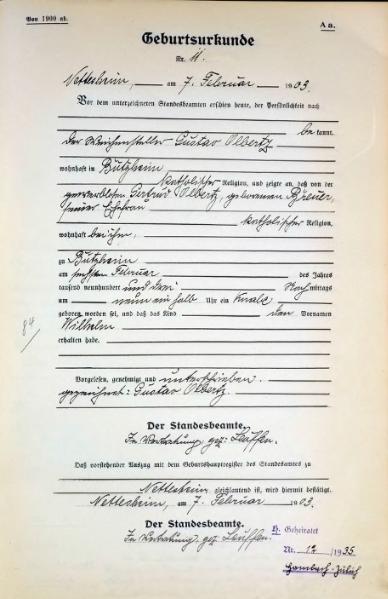 Von 1900 ab.
Aa.
Geburtsurkunde
Nr. 11.
Nettersheim, am 7. Februar 1903.
Vor dem unterzeichneten Standesbeamten erschien heute, der Persönlichkeit nach
be kannt,
der Weichensteller Gustav Olbertz
wohnhaft in Bützheim
katholischer Religion, und zeigte an, daß von der
Gertrud Olbertz, geborenen Breuer,
seiner Ehefrau
katholischer Religion,
wohnhaft bei ihm,
zu Bützheim
am sechsten Februar des Jahres
tausend neunhundert und drei Nachmittags
um neun ein halb Uhr ein Knabe
geboren worden sei, und daß das Kind den Vornamen
Wilhelm
erhalten habe.
84
Vorgelesen, genehmigt und unterschrieben.
gezeichnet: Gustav Olbertz.
Der Standesbeamte.
In Vertretung gez:
Daß vorstehender Auszug mit dem Geburtshauptregister des Standesamtes zu
Nettersheim gleichlautend ist, wird hiermit bestätigt.
Nettersheim, am 7. Februar 1903.
Der Standesbeamte.
In Vertretung gez.
H. Geheiratet
Nr. 12 /1935
Hambach-Jülich